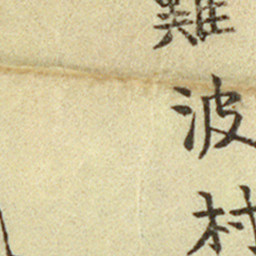 難波村